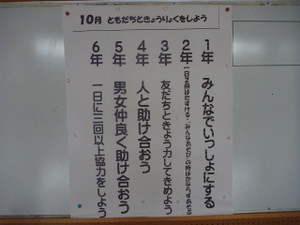 10月 ともだちときょうりょくをしよう
1年 みんなでいっしょにする
2年
3年 友だちときょう力してきめよう
4年 人と助け合おう
5年 男女仲良く助け合おう
6年 一日に三回以上協力をしよう